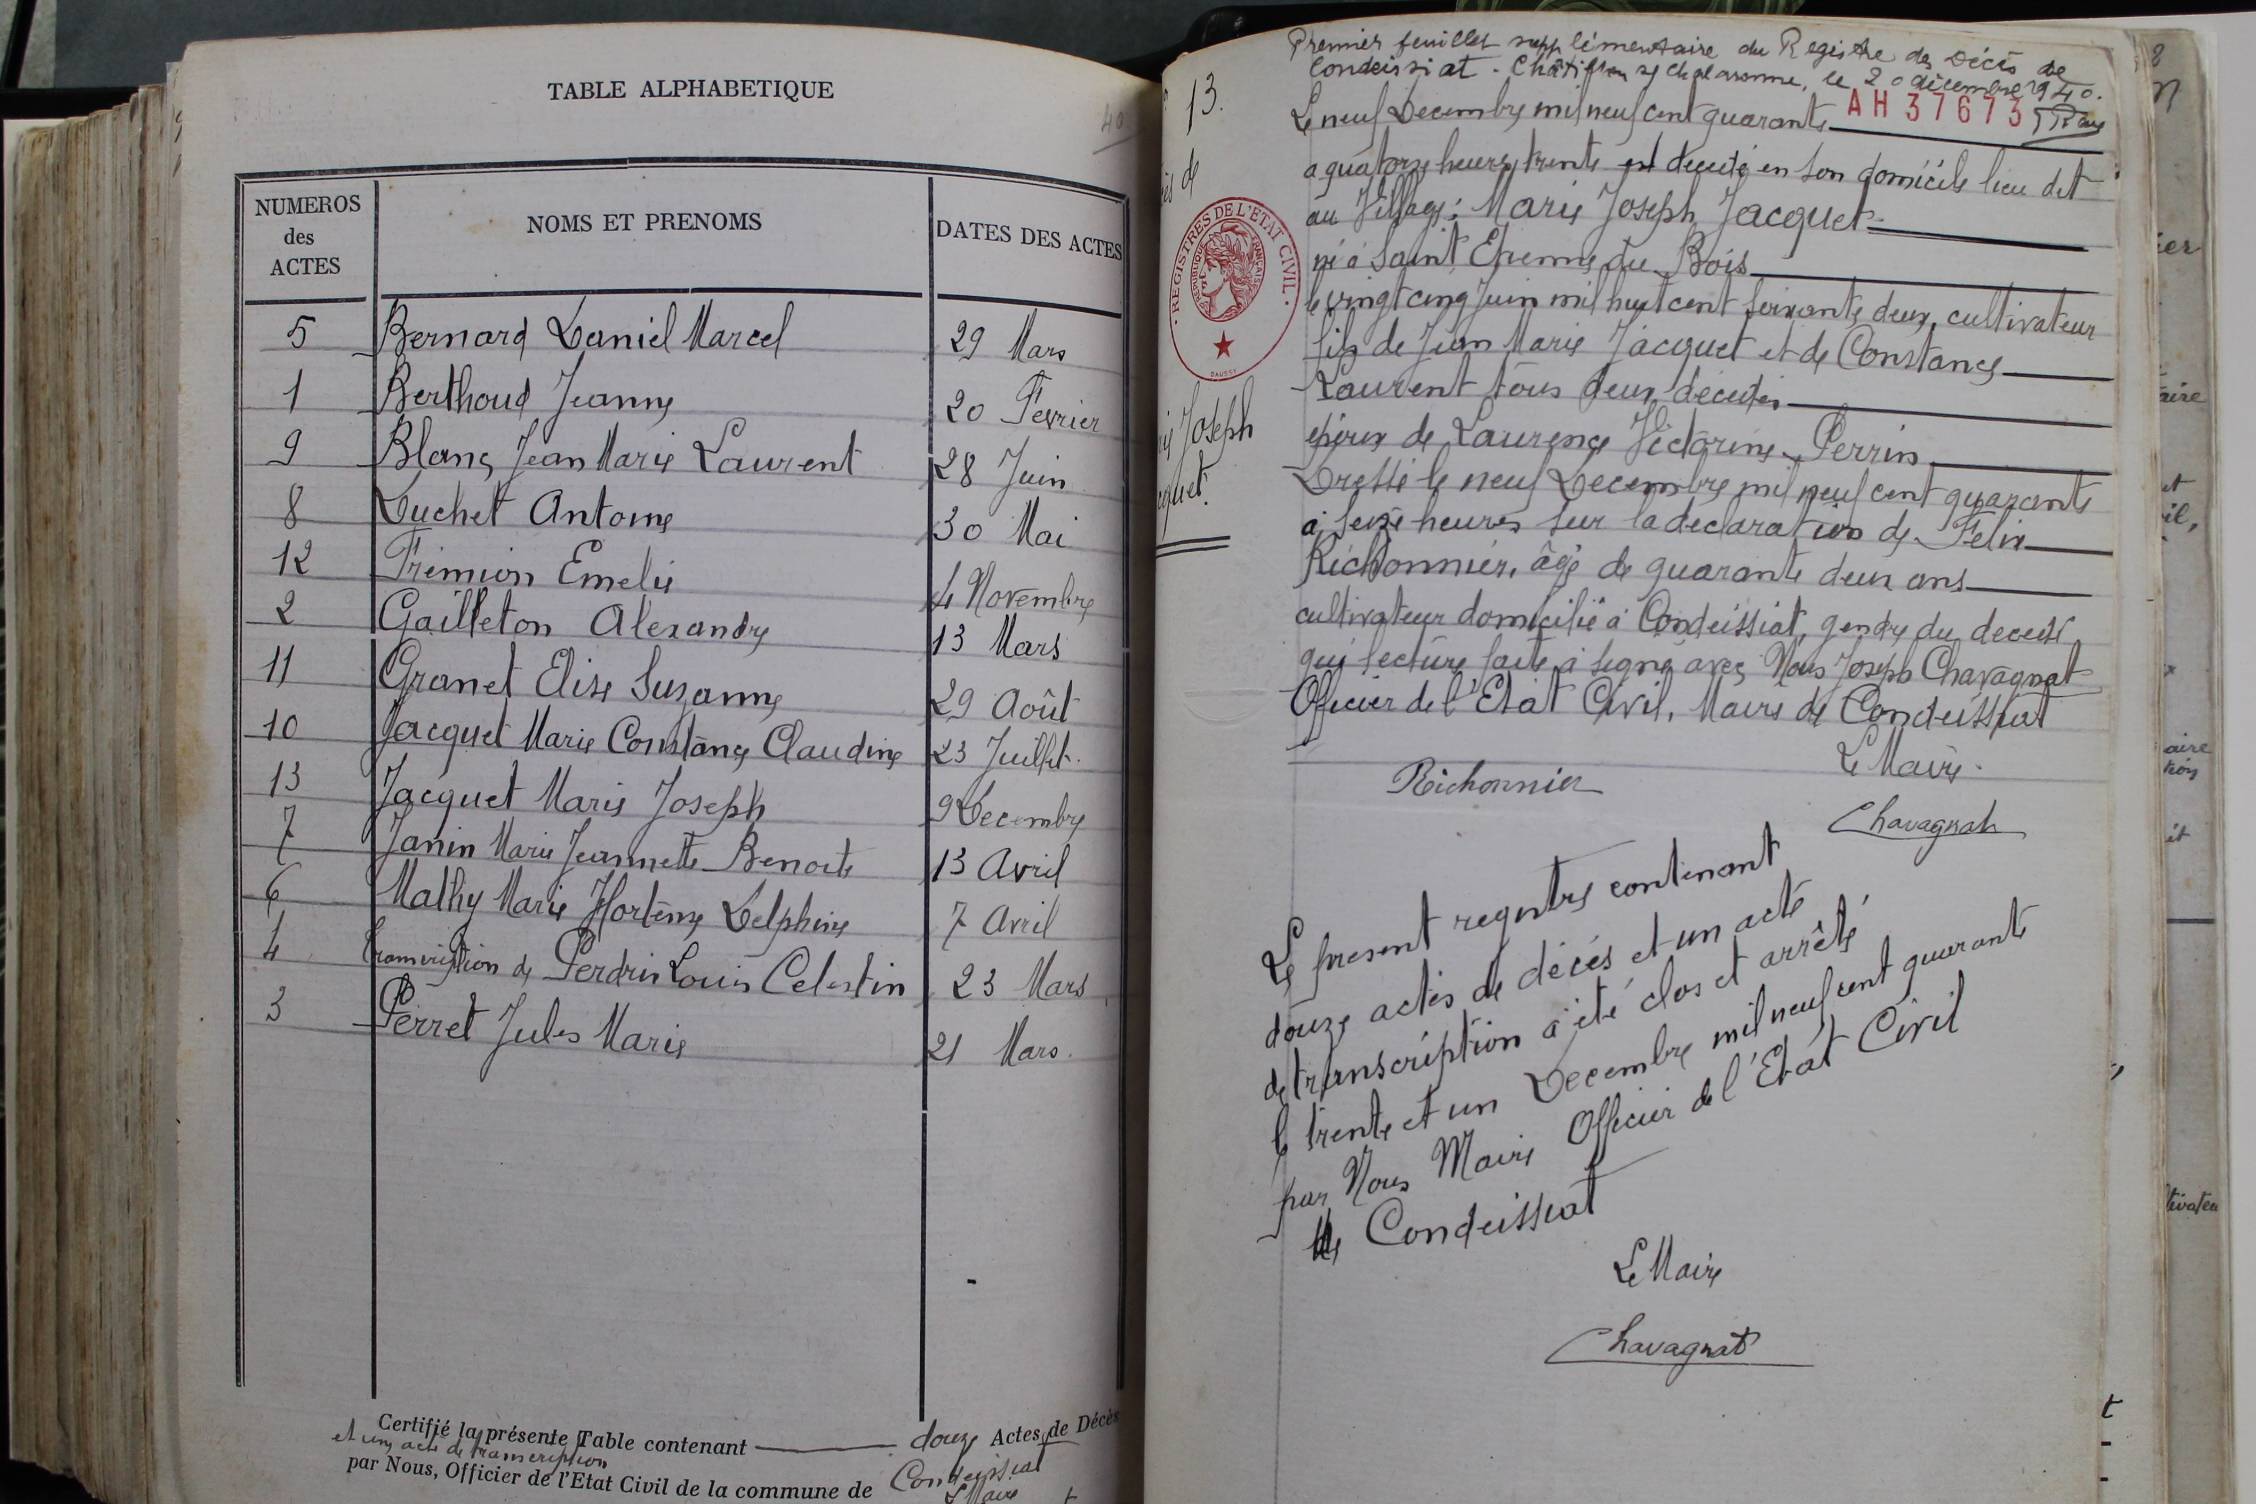 TABLE ALPHABETIQUE
40
NUMEROS des ACTES
NOMS ET PRENOMS
DATES DES ACTES
5 Bernard Daniel Marcel 29 Mars
1 Berthoud Jeanne 20 Fevrier
9 Blanc Jean Marie Laurent 28 Juin
8 Duchet Antoine 30 Mai
12 Frémion Emelie 4 Novembre
2 Gailleton Alexandre 13 Mars
11 Granet Elise Suzanne 29 Août
10 Jacquet Marie Constance Claudine 23 Juillet.
13 Jacquet Marie Joseph 9 Décembre
7 Janin Marie Jeannette Benoite 13 Avril
6 Mathy Marie Hortense Delphine 7 Avril
4 Transcription de Perdrix Louis Celestin 23 Mars
3 Perret Jules Marie 21 Mars.
Certifié la présente Table contenant douze Actes de Décès
et un acte de transcription
par Nous, Officier de l'Etat Civil de la commune de Condeissiat
Le Maire
Premier feuillet supplémentaire du Registre des Décès de
Condeissiat. Châtillon s/ Chalaronne, le 20 décembre 1940.
AH 37673
13.
de
REGISTRES DE L'ETAT CIVIL
REPUBLIQUE FRANÇAISE
DAUSSY
Joseph
Le neuf Decembre mil neuf cent quarante
a quatorze heures trente est decedé en son domicile lieu dit
au Village: Marie Joseph Jacquet
né à Saint Etienne du Bois
le vingt cinq Juin mil huit cent soixante deux, cultivateur
fils de Jean Marie Jacquet et de Constance
Laurent tous deux décédés
époux de Laurence Victorine Perrin
Dressé le neuf Decembre mil neuf cent quarante
à seize heures sur la déclaration de Felix
Richonnier, âgé de quarante deux ans
cultivateur domicilié à Condeissiat, gendre du decedé
qui lecture faite a signé avec Nous Joseph Chavagnat
Officier de l'Etat Civil, Maire de Condeissiat
Le Maire.
Richonnier
Chavagnat
Le present registre contenant
douze actes de décès et un acte
de transcription a été clos et arrêté
le trente et un Decembre mil neuf cent quarante
par Nous Maire Officier de l'Etat Civil
de Condeissiat
Le Maire
Chavagnat